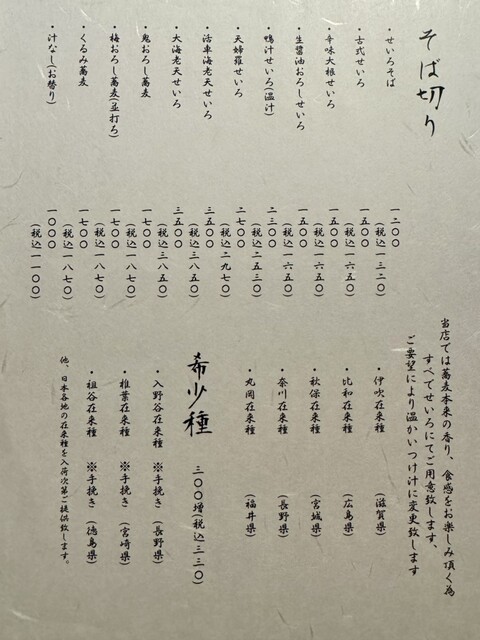 そば切り
・せいろそば 一二〇〇
(税込一三二〇)
・古式せいろ 一五〇〇
(税込一六五〇)
・辛味大根せいろ 一五〇〇
(税込一六五〇)
・生醬油おろしせいろ 一五〇〇
(税込一六五〇)
・鴨汁せいろ(温汁) 二三〇〇
(税込二五三〇)
・天婦羅せいろ 二七〇〇
(税込二九七〇)
・活車海老天せいろ 三五〇〇
(税込三八五〇)
・大海老天せいろ 三五〇〇
(税込三八五〇)
・鬼おろし蕎麦 一七〇〇
(税込一八七〇)
・梅おろし蕎麦(並打ち) 一七〇〇
(税込一八七〇)
・くるみ蕎麦 一七〇〇
(税込一八七〇)
・汁なし(お替り) 一〇〇〇
(税込一一〇〇)
当店では蕎麦本来の香り、食感をお楽しみ頂く為
すべてせいろにてご用意致します、
ご要望により温かいつけ汁に変更致します
・伊吹在来種 (滋賀県)
・比和在来種 (広島県)
・秋保在来種 (宮城県)
・奈川在来種 (長野県)
・丸岡在来種 (福井県)
希少種 三〇〇増(税込三三〇)
・入野谷在来種 ※手挽き (長野県)
・椎葉在来種 ※手挽き (宮崎県)
・祖谷在来種 ※手挽き (徳島県)
他、日本各地の在来種を入荷次第ご提供致します。